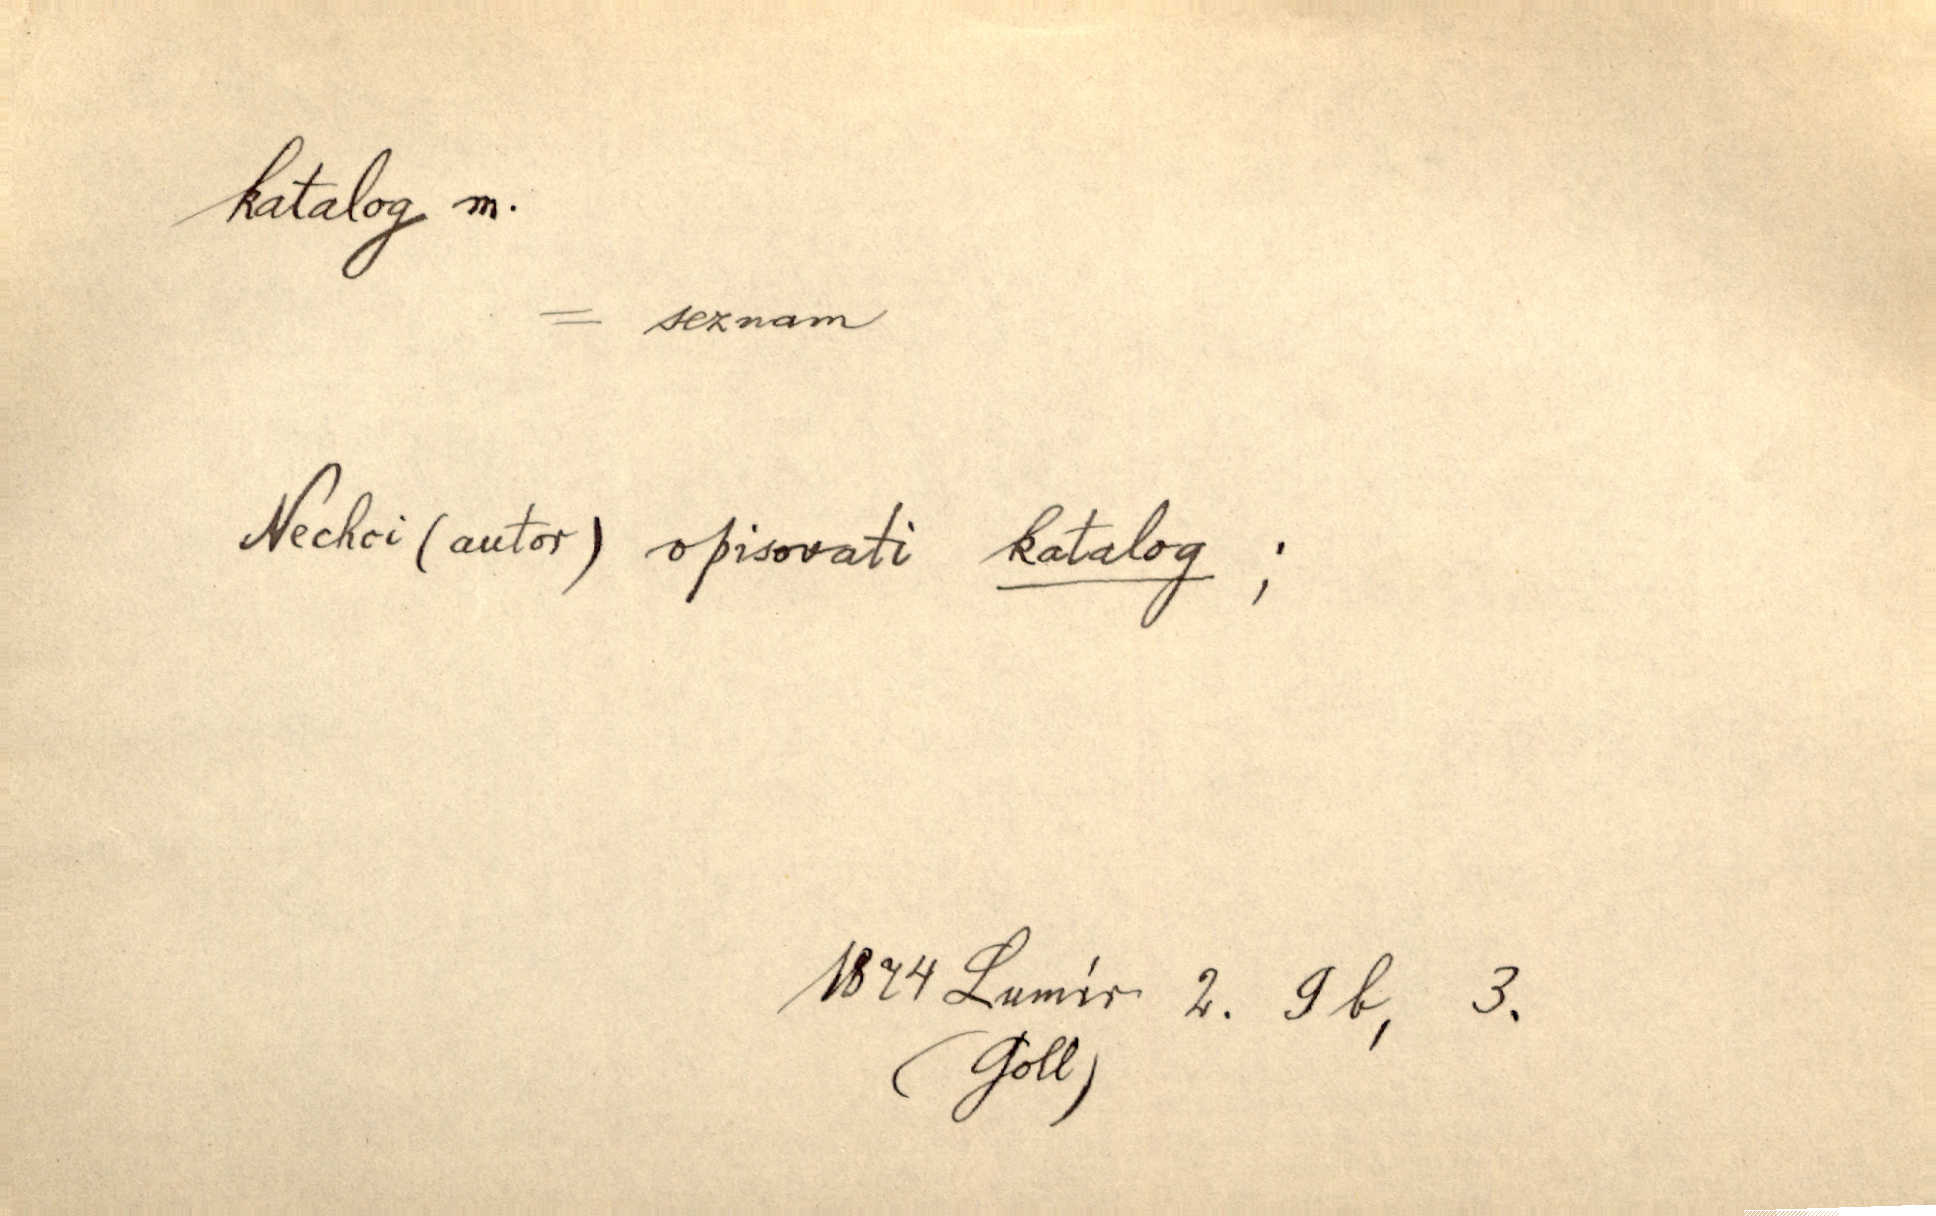 katalog m.
= seznam
Nechci (autor) opisovati katalog ;
1874 Lumír 2. 9 b, 3.
(Goll)